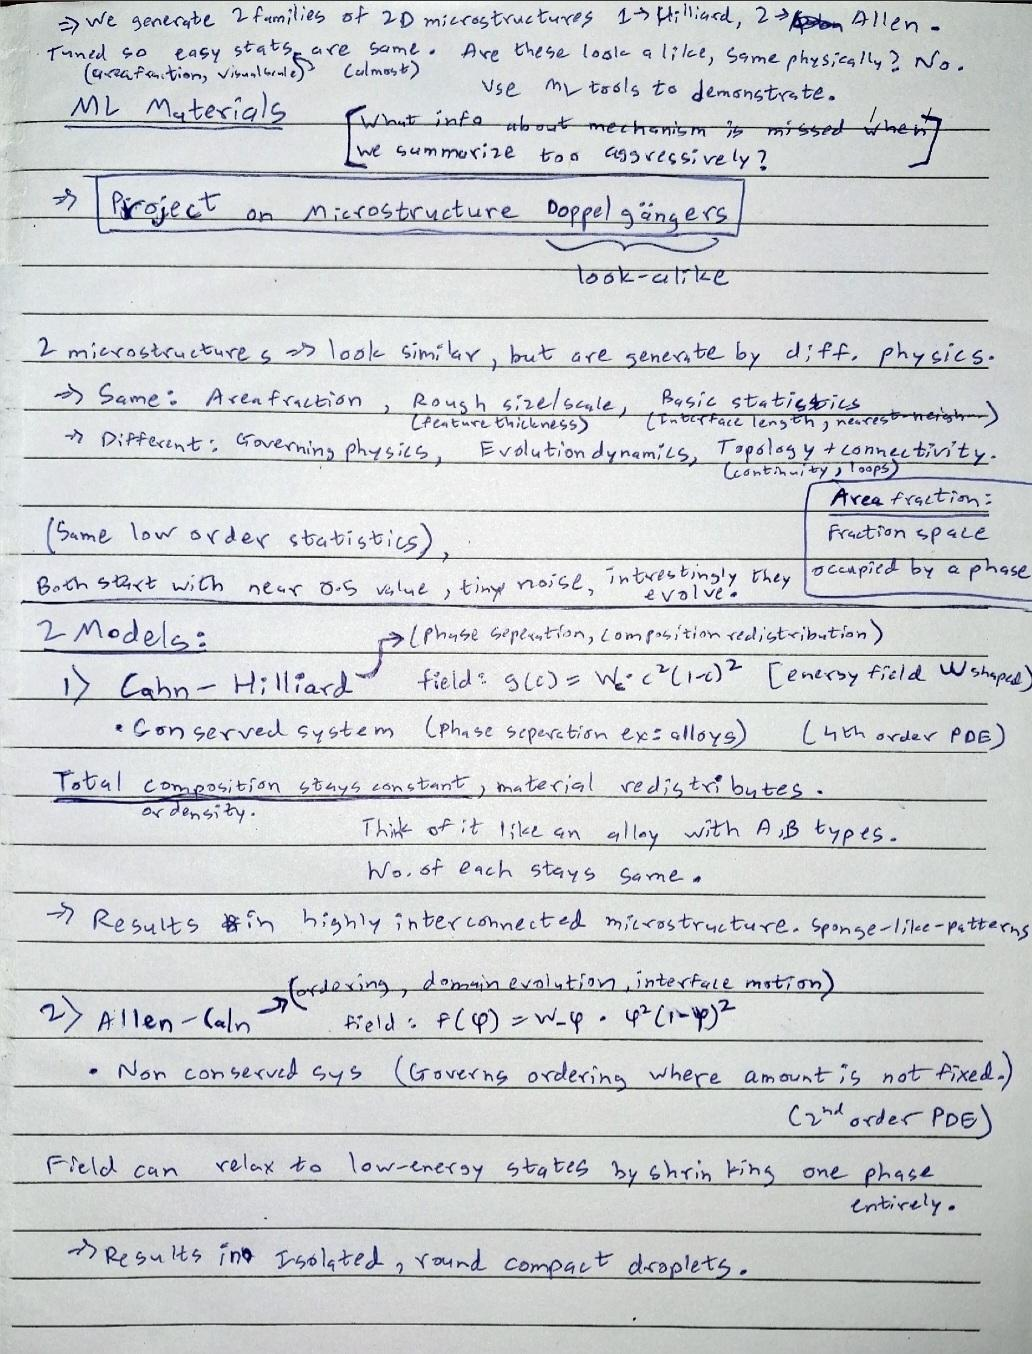 ⇒ We generate 2 families of 2D microstructures 1→ Hilliard, 2→ Allen.
Tuned so easy stats are same. Are these look alike, same physically? No.
(area fraction, visual scale) (almost)
Use ML tools to demonstrate.
ML Materials
[What info about mechanism is missed when
we summarize too aggressively?]
⇒ Project on Microstructure Doppelgängers
look-alike
2 microstructures ⇒ look similar, but are generate by diff. physics.
⇒ Same: Area fraction, Rough size/scale, Basic statistics
(feature thickness) (Interface length, nearest-neigh)
⇒ Different: Governing physics, Evolution dynamics, Topology + connectivity.
(continuity, loops)
Area fraction:
Fraction space
occupied by a phase
(Same low order statistics),
Both start with near 0.5 value, tiny noise, intrestingly they
evolve.
2 Models:
→ (phase seperation, composition redistribution)
1) Cahn-Hilliard field: g(c) = Wc · c²(1-c)² [energy field W shaped]
• Conserved system (Phase seperation ex: alloys) (4th order PDE)
Total composition stays constant, material redistributes.
or density.
Think of it like an alloy with A,B types.
No. of each stays same.
⇒ Results in highly interconnected microstructure. Sponge-like-patterns
→ (ordering, domain evolution, interface motion)
2) Allen-Caln field: f(φ) = W_φ · φ²(1-φ)²
• Non conserved sys (Governs ordering where amount is not fixed.)
(2nd order PDE)
Field can relax to low-energy states by shrinking one phase
entirely.
⇒ Results in Isolated, round compact droplets.